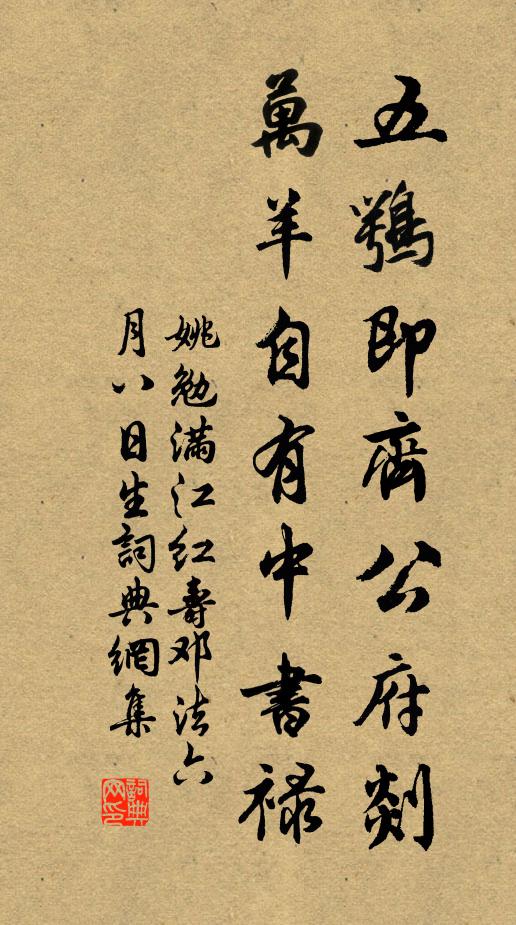 五鶚即齊公府剡
萬羊自有中書禄
姚勉滿江红壽邓法六
月八日生詞典網集
詞典网印